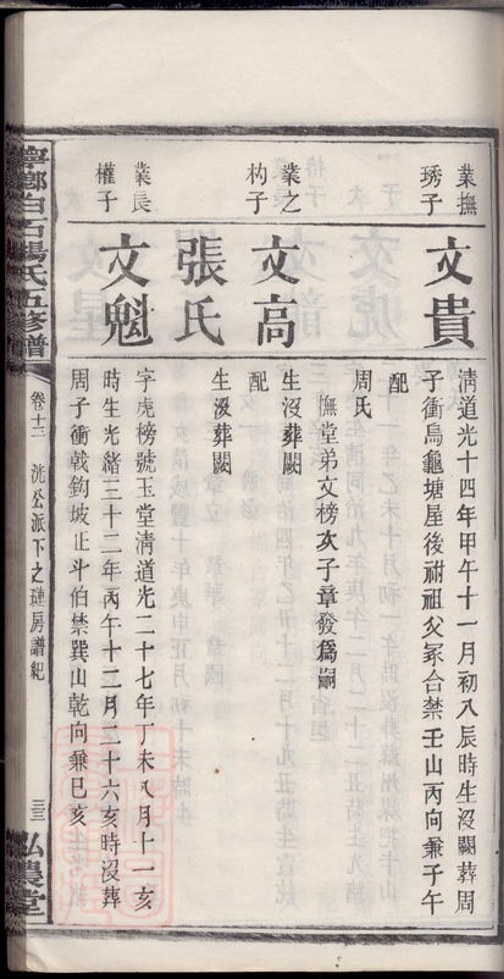 業撫
琇子
文貴
清道光十四年甲午十一月初八辰時生沒闕葬周
子衝烏龜塘屋後祔祖父冢合禁壬山丙向兼子午
配
周氏
撫堂弟文榜次子章發爲嗣
業之
杓子
文高
生沒葬闕
配
張氏
生沒葬闕
業長
權子
文魁
字虎榜號玉堂清道光二十七年丁未八月十一亥
時生光緒三十二年丙午十二月二十六亥時沒葬
周子衝戟鉤坡止斗伯禁巽山乾向兼巳亥
寧鄉白石楊氏五修譜
卷十三
洸公派下之璉房譜紀
三三
弘農堂